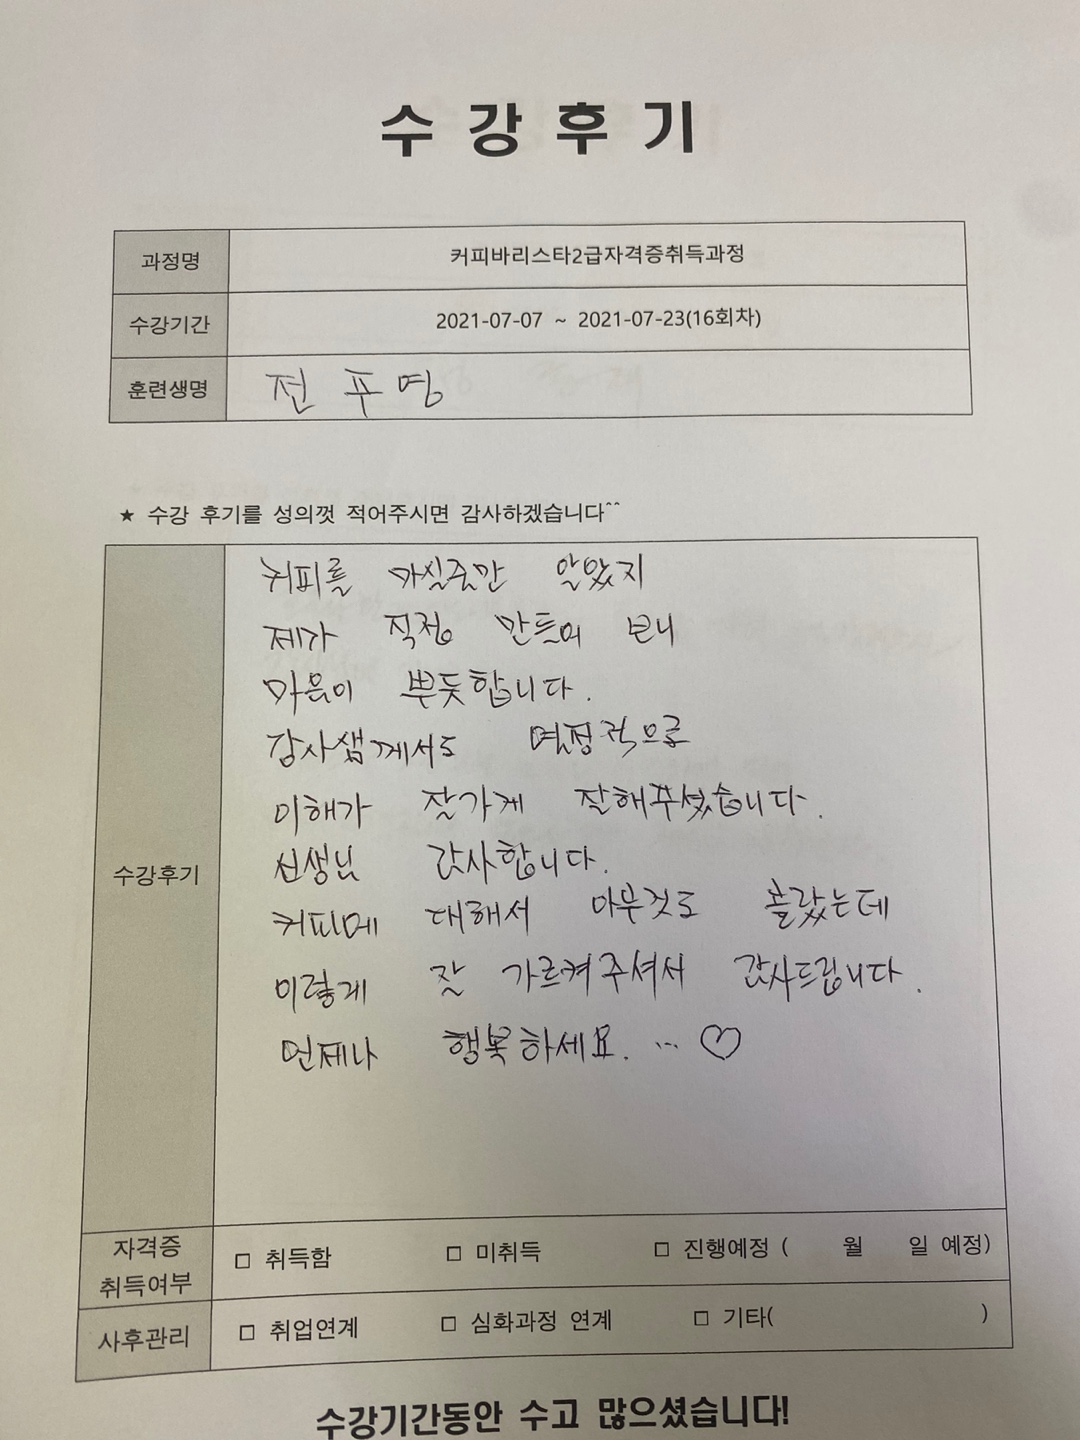 수강후기
과정명 커피바리스타2급자격증취득과정
수강기간 2021-07-07 ~ 2021-07-23(16회차)
훈련생명 전푸명
★ 수강 후기를 성의껏 적어주시면 감사하겠습니다^^
커피를 마실줄만 알았지
제가 직접 만들어 보니
마음이 뿌듯합니다.
강사샘께서도 열정적으로
이해가 잘가게 잘해주셨습니다.
선생님 감사합니다.
수강후기
커피에 대해서 아무것도 몰랐는데
이렇게 잘 가르켜주셔서 감사드립니다.
언제나 행복하세요. ... ♡
자격증 취득여부 □ 취득함 □ 미취득 □ 진행예정 ( 월 일 예정)
사후관리 □ 취업연계 □ 심화과정 연계 □ 기타( )
수강기간동안 수고 많으셨습니다!